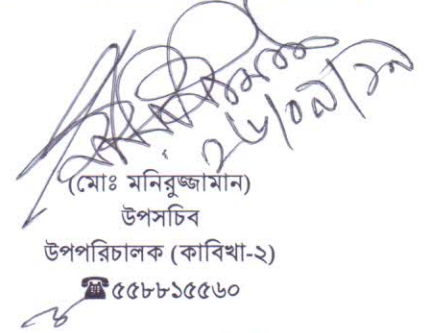 (মোঃ মনিরুজ্জামান)
উপসচিব
উপপরিচালক (কাবিখা-২)
☎৫৫৮৮১৫৫৬০